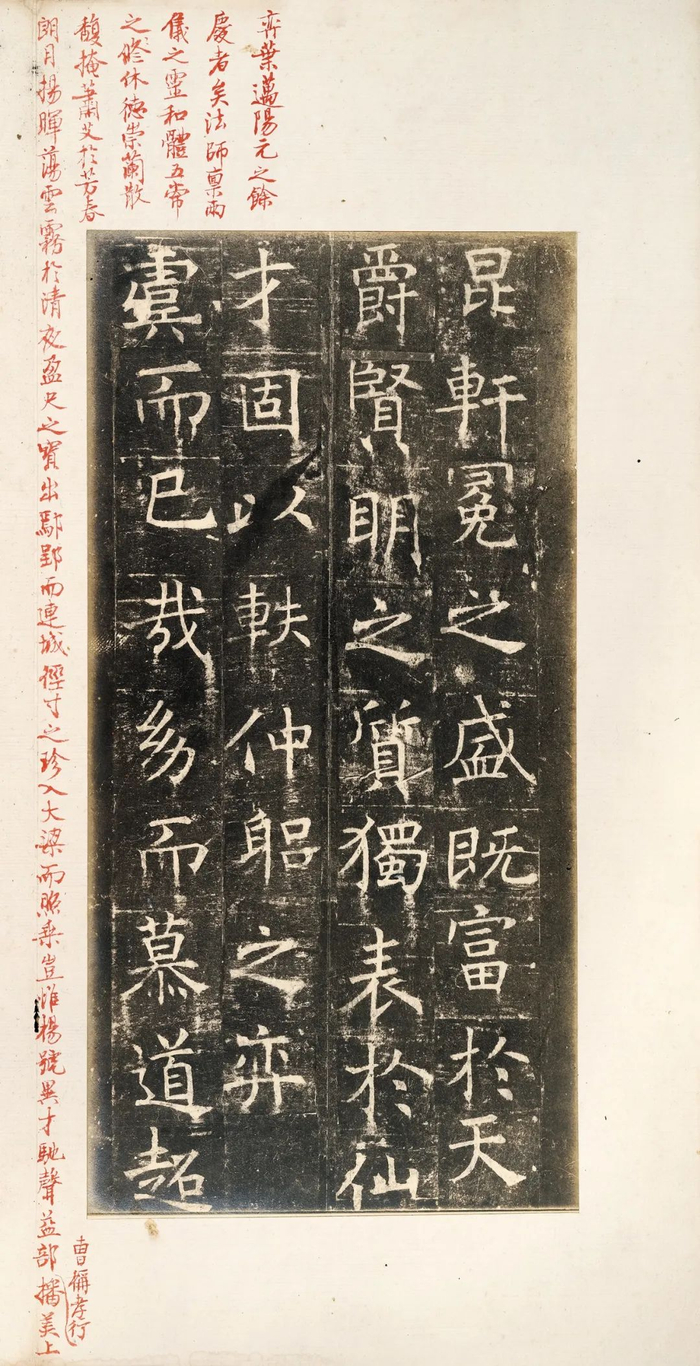 昆軒冕之盛既富於天
爵賢明之質獨表於仙
才固以軼仲躳之弈
虞而已哉幼而慕道超
弈葉邁陽元之餘
慶者矣法師稟兩
儀之靈和體五常
之脩休德崇蘭散
馥掩蕭艾於芳春
朗月揚暉蕩雲霧於清夜盈尺之寶出鄢郢而連城徑寸之珍入大梁而照乘豈惟楊號異才馳聲益部播美上
曹稱孝行